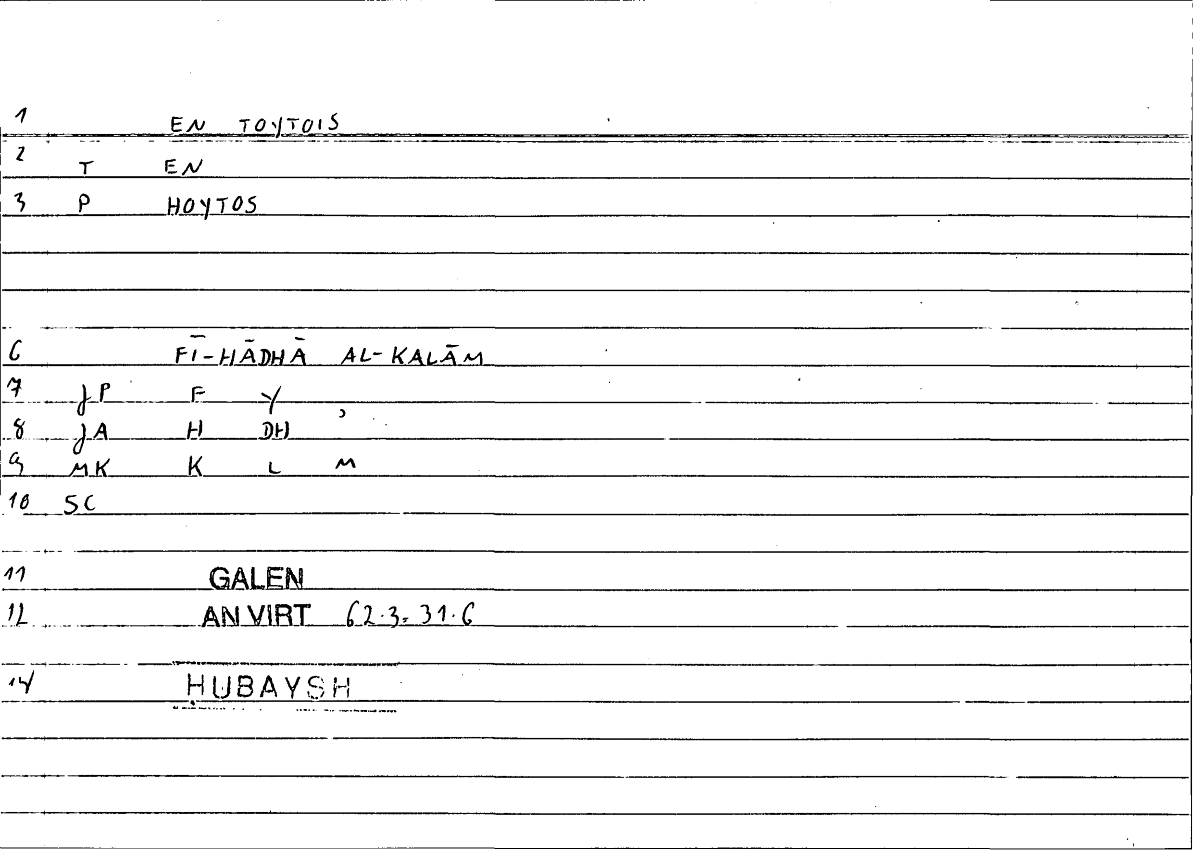 1 EN TOYTOIS
2 T EN
3 P HOYTOS
6 FĪ-HĀDHĀ AL-KALĀM
7 JP F Y
8 JA H DH ʾ
9 MK K L M
10 SC
11 GALEN
12 AN VIRT 62.3=31.6
14 ḤUBAYSH